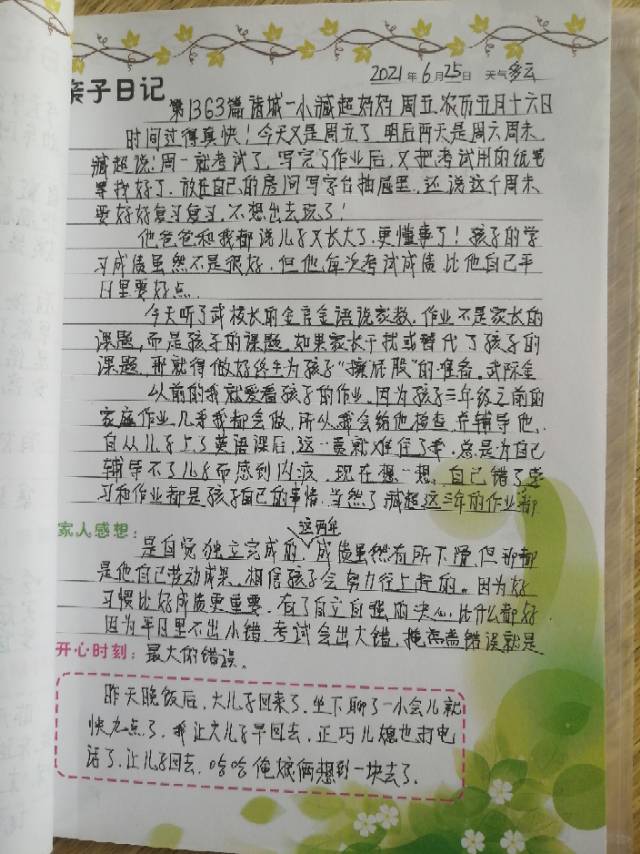 亲子日记
2021年6月25日 天气多云
第1363篇诸城一小臧超妈妈 周五.农历五月十六日
时间过得真快！今天又是周五了.明后两天是周六周末.
臧超说:周一就考试了.写完了作业后.又把考试用的纸笔
等找好了.放在自己的房间写字台抽屉里.还说这个周末
要好好复习复习.不想出去玩了！
他爸爸和我都说儿子又长大了.更懂事了！孩子的学
习成绩虽然不是很好.但他每次考试成绩.比他自己平
日里要好点.
今天听了武校长的金言金语说家教.作业不是家长的
课题,而是孩子的课题.如果家长干扰或替代了孩子的
课题.那就得做好终生为孩子“擦屁股”的准备.武际金
以前的我就爱看孩子的作业.因为孩子三年级之前的
家庭作业.几乎我都会做,所以我会给他检查.并辅导他.
自从儿子上了英语课后.这一页就难住了我.总是为自己
辅导不了儿子而感到内疚.现在想一想.自己错了学
习和作业都是孩子自己的事情.当然了臧超这三年的作业都
家人感想:
是自觉独立完成的.这两年成绩虽然有所下滑.但那都
是他自己劳动成果.相信孩子会努力往上赶的.因为好
习惯比好成绩更重要.有了自立自强的决心.比什么都好
因为平日里不出小错.考试会出大错.掩盖错误就是
开心时刻:最大的错误.
昨天晚饭后.大儿子回来了.坐下聊了一小会儿就
快九点了.我让大儿子早回去.正巧儿媳也打电
话了.让儿子回去.哈哈俺娘俩想到一块去了.